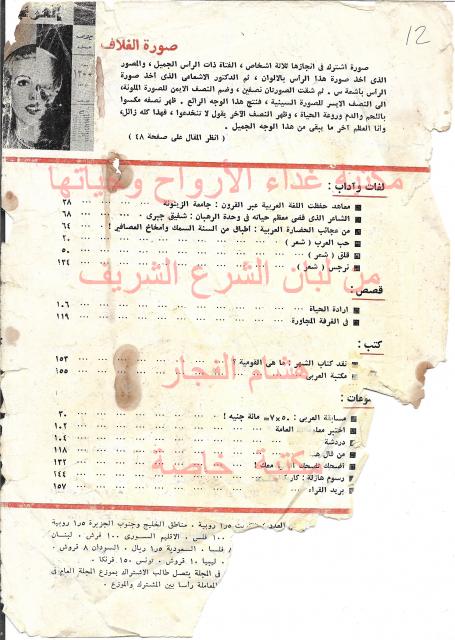 12
صورة الغلاف
صورة اشترك في انجازها ثلاثة اشخاص ، الفتاة ذات الراس الجميل ، والمصور
الذى اخذ صورة هذا الراس بالالوان ، ثم الدكتور الاشعاعى الذى اخذ صورة
الراس باشعة س . ثم شقت الصورتان نصفين ، وضم النصف الايمن للصورة الملونة ،
الى النصف الايسر للصورة السينية ، فنتج هذا الوجه الرائع . ظهر نصفه مكسوا
باللحم والدم وروعة الحياة ، وظهر النصف الآخر يقول لا تنخدعوا ، فهذا كله زائل ،
وانا العظم آخر ما يبقى من هذا الوجه الجميل .
( انظر المقال على صفحة ٤٨ )
مكتبة غذاء الأرواح وحياتها
لغات وآداب :
معاهد حفظت اللغة العربية عبر القرون : جامعة الزيتونة ... ٣٨
الشاعر الذى قضى معظم حياته فى وحدة الرهبان : شفيق جبرى ... ٦٨
من عجائب الحضارة العربية : اطباق من السنة السمك وأمخاخ العصافير ! ... ٦٤
حب العرب ( شعر ) ... ٢٠
قلق ( شعر ) ... ٥٠
نرجس ( شعر ) ... ١٣٤
من لبان الشرع الشريف
قصص :
ارادة الحياة ... ١٠٦
فى الغرفة المجاورة ... ١١٩
كتب :
نقد كتاب الشهر : ما هى القومية ؟ ... ١٥٣
مكتبة العربى ... ١٥٥
هشام الفجار
وعات :
مسابقة العربى : ٥٠×٧= مائة جنيه ! ... ٣٠
اختبر العامة ... ١٠٢
دردشة ... ١٠٤
من قال ... ١١٨
أضحك تضحك معك ! ... ١٣٢
رسوم هازلة : ... ١٤٤
بريد القراء ... ١٥٧
مكتبة خاصة
العدد : ١٫٥ روبية . مناطق الخليج وجنوب الجزيرة ١٫٥ روبية
١٠٠ فلس . الاقليم السورى ١٠٠ قرش . لبنان
فلسا . السعودية ١٫٥ ريال . السودان ٨ قروش .
ليبيا ١٠ قروش . تونس ١٥٠ فرنكا .
فى المجلة يتصل طالب الاشتراك بموزع المجلة العام فى
المعاملة رأسا بين المشترك والموزع .